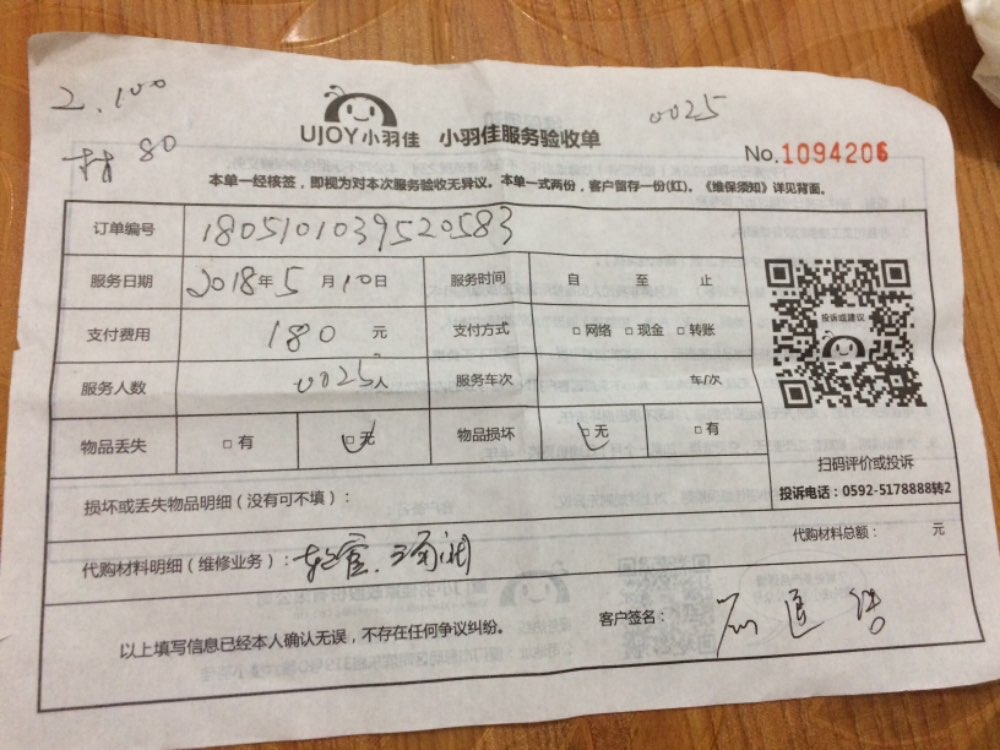 2.100
80
0025
UJOY小羽佳 小羽佳服务验收单
No.1094206
本单一经核签，即视为对本次服务验收无异议。本单一式两份，客户留存一份(红)。《维保须知》详见背面。
订单编号 1805101039520583
服务日期 2018年5月10日 服务时间 自 至 止
支付费用 180元 支付方式 □网络 □现金 □转账
服务人数 0025人 服务车次 车/次
物品丢失 □有 □无 物品损坏 □无 □有
投诉或建议
扫码评价或投诉
投诉电话：0592-5178888转2
损坏或丢失物品明细（没有可不填）：
代购材料总额： 元
代购材料明细（维修业务）：
以上填写信息已经本人确认无误，不存在任何争议纠纷。
客户签名：